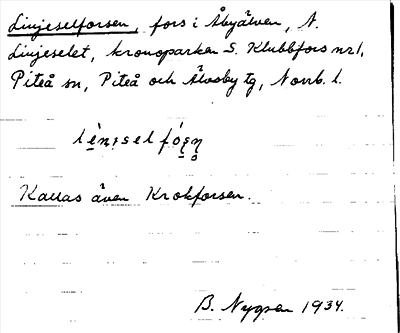 Linjeselforsen, fors i Åbyälven, N.
Linjeselet, kronoparken S. Klubbfors nr 1,
Piteå sn, Piteå och Älvsby tg, Norrb. l.
Kallas även Krokforsen.
B. Nygren 1934.